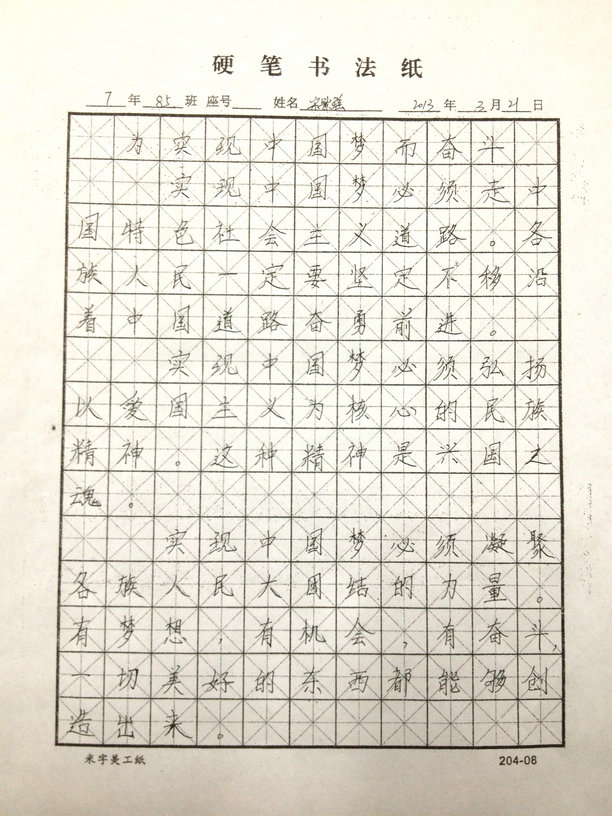 硬笔书法纸
7年 85班 座号 姓名 2013年 3月21日
为实现中国梦而奋斗
实现中国梦必须走中
国特色社会主义道路。各
族人民一定要坚定不移沿
着中国道路奋勇前进。
实现中国梦必须弘扬
以爱国主义为核心的民族
精神。这种精神是兴国之
魂。
实现中国梦必须凝聚
各族人民大团结的力量。
有梦想，有机会，有奋斗，
一切美好的东西都能够创
造出来。
米字美工纸 204-08